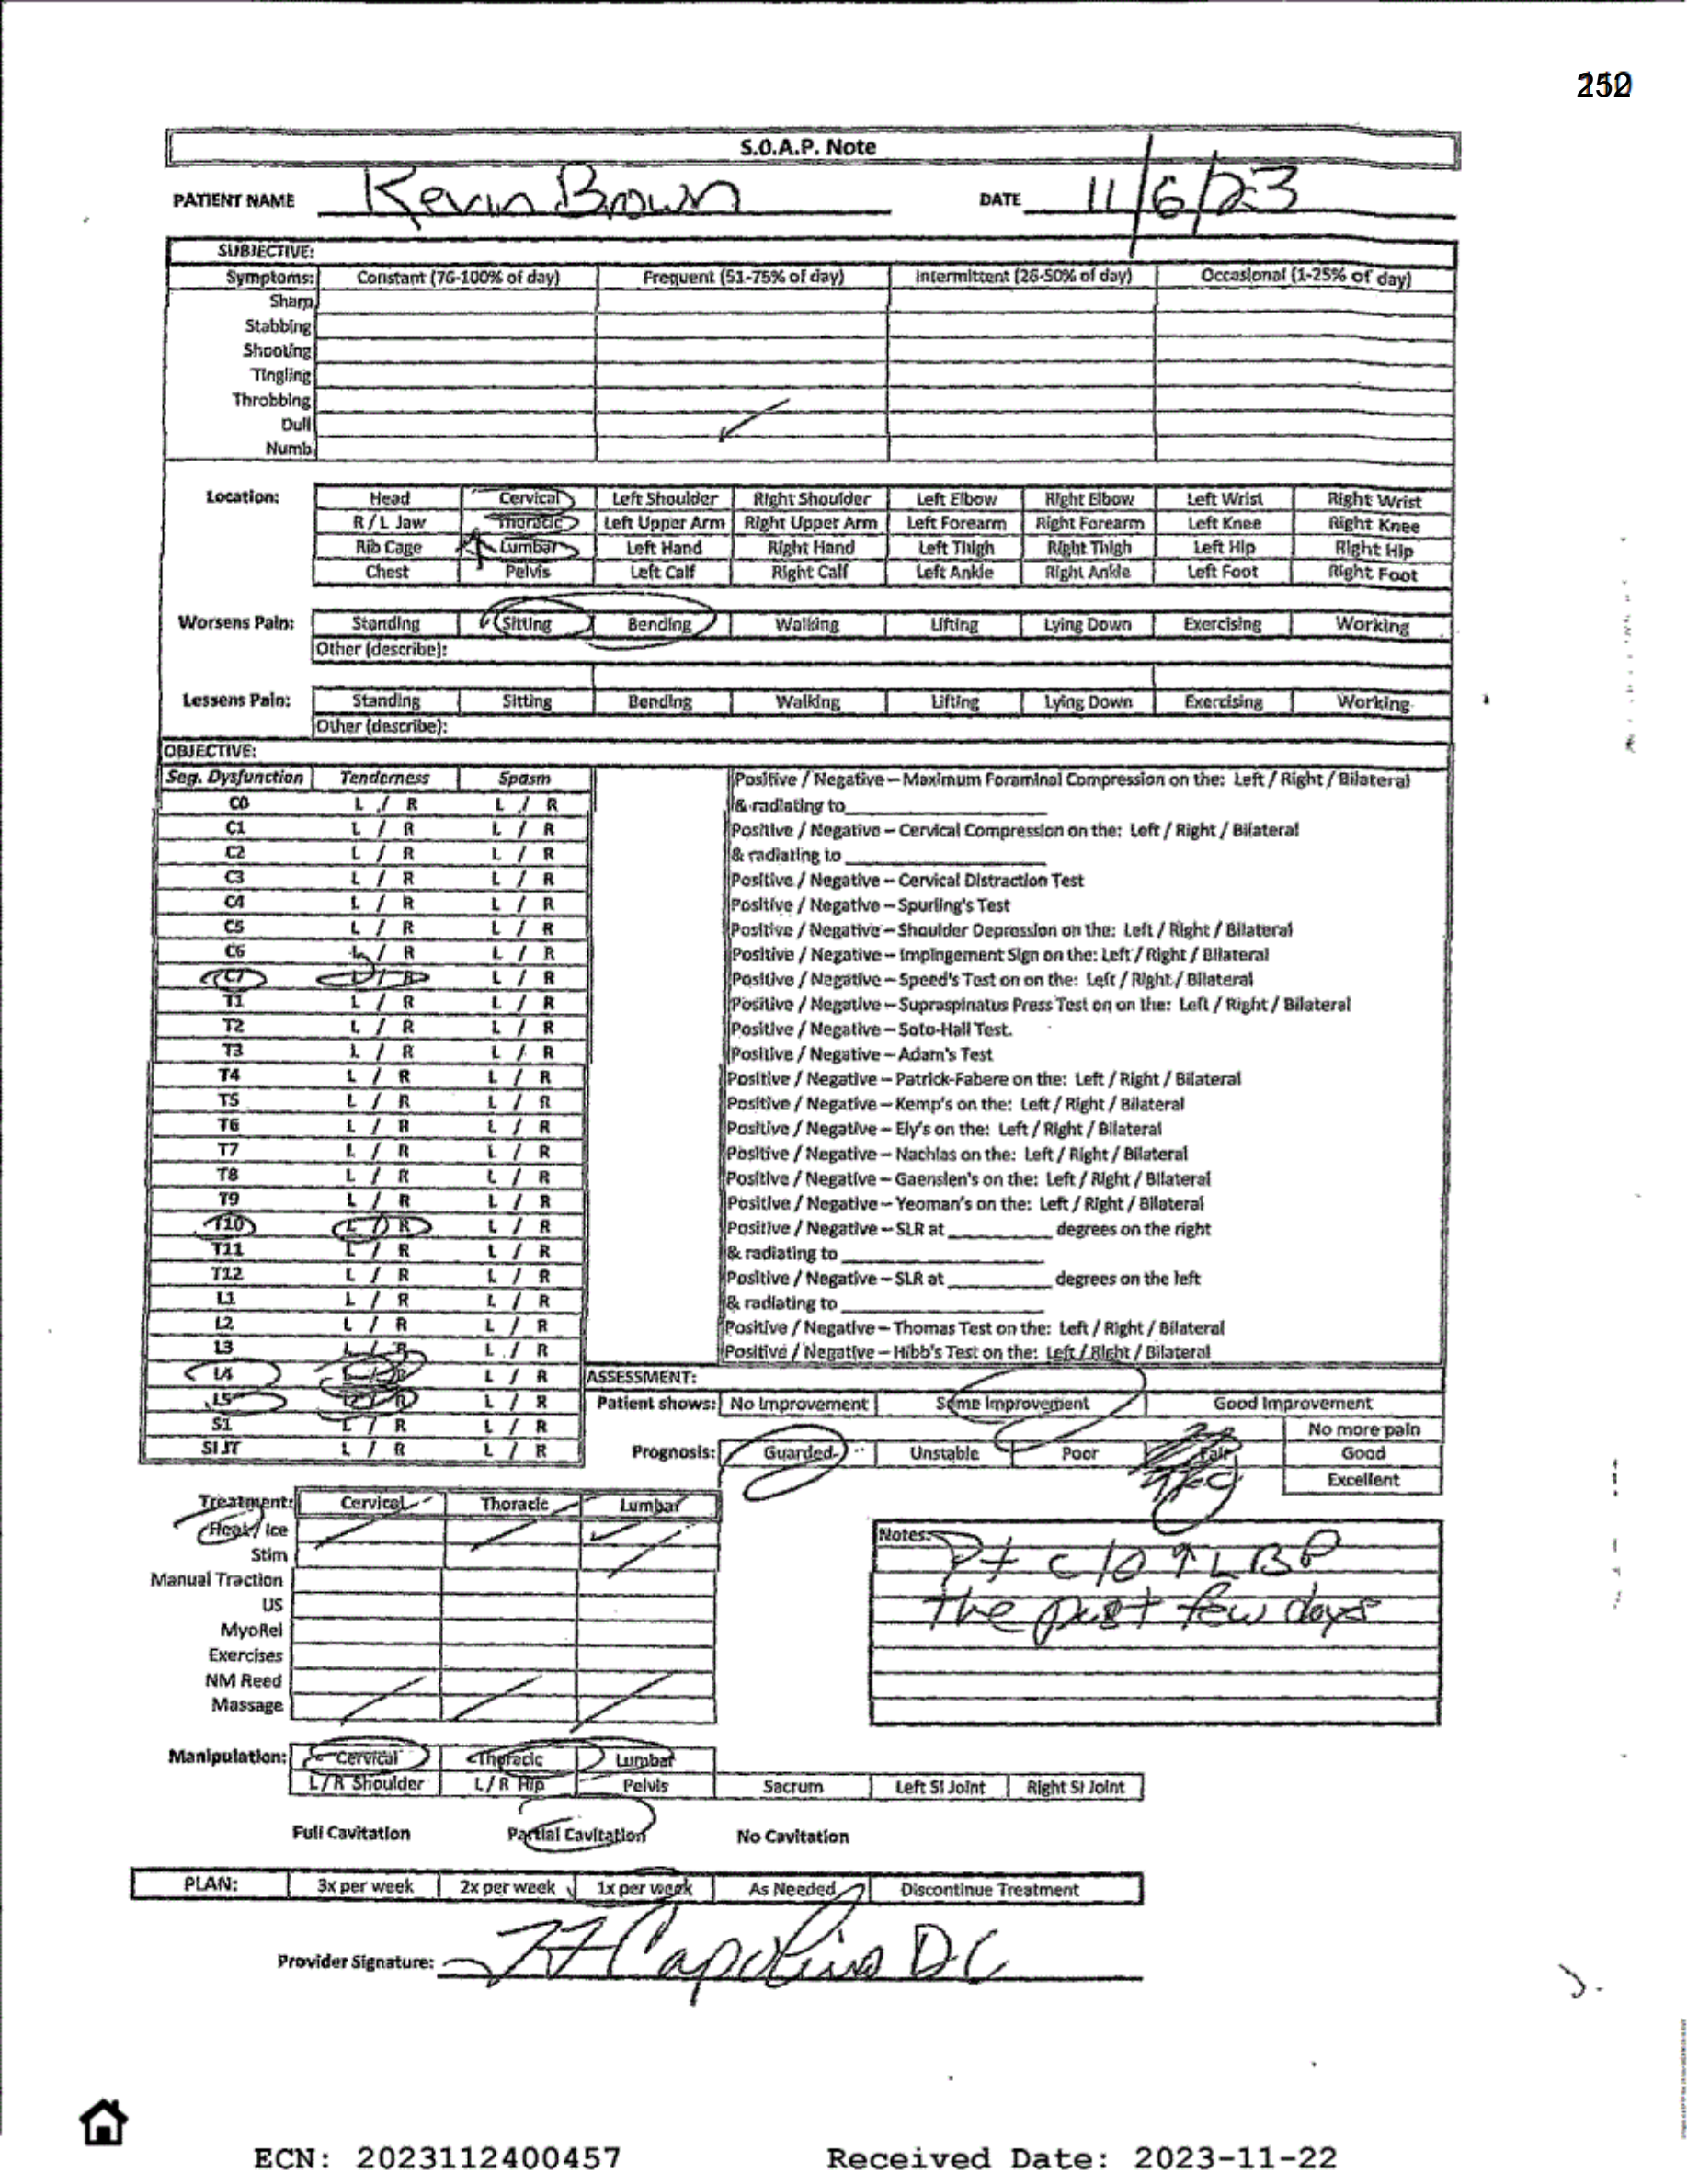 S.O.A.P. Note
PATIENT NAME Kevin Brown DATE 11/6/23
SUBJECTIVE:
Symptoms: Constant (76-100% of day) Frequent (51-75% of day) Intermittent (26-50% of day) Occasional (1-25% of day)
Sharp
Stabbing
Shooting
Tingling
Throbbing
Dull
Numb
Location: Head Cervical Left Shoulder Right Shoulder Left Elbow Right Elbow Left Wrist Right Wrist
R / L Jaw Thoracic Left Upper Arm Right Upper Arm Left Forearm Right Forearm Left Knee Right Knee
Rib Cage ↑ Lumbar Left Hand Right Hand Left Thigh Right Thigh Left Hip Right Hip
Chest Pelvis Left Calf Right Calf Left Ankle Right Ankle Left Foot Right Foot
Worsens Pain: Standing Sitting Bending Walking Lifting Lying Down Exercising Working
Other (describe):
Lessens Pain: Standing Sitting Bending Walking Lifting Lying Down Exercising Working
Other (describe):
OBJECTIVE:
Seg. Dysfunction Tenderness Spasm Positive / Negative – Maximum Foraminal Compression on the: Left / Right / Bilateral
C0 L / R L / R & radiating to
C1 L / R L / R Positive / Negative – Cervical Compression on the: Left / Right / Bilateral
C2 L / R L / R & radiating to
C3 L / R L / R Positive / Negative – Cervical Distraction Test
C4 L / R L / R Positive / Negative – Spurling's Test
C5 L / R L / R Positive / Negative – Shoulder Depression on the: Left / Right / Bilateral
C6 L / R L / R Positive / Negative – Impingement Sign on the: Left / Right / Bilateral
C7 L / R L / R Positive / Negative – Speed's Test on on the: Left / Right / Bilateral
T1 L / R L / R Positive / Negative – Supraspinatus Press Test on on the: Left / Right / Bilateral
T2 L / R L / R Positive / Negative – Soto-Hall Test.
T3 L / R L / R Positive / Negative – Adam's Test
T4 L / R L / R Positive / Negative – Patrick-Fabere on the: Left / Right / Bilateral
T5 L / R L / R Positive / Negative – Kemp's on the: Left / Right / Bilateral
T6 L / R L / R Positive / Negative – Ely's on the: Left / Right / Bilateral
T7 L / R L / R Positive / Negative – Nachlas on the: Left / Right / Bilateral
T8 L / R L / R Positive / Negative – Gaenslen's on the: Left / Right / Bilateral
T9 L / R L / R Positive / Negative – Yeoman's on the: Left / Right / Bilateral
T10 L / R L / R Positive / Negative – SLR at degrees on the right
T11 L / R L / R & radiating to
T12 L / R L / R Positive / Negative – SLR at degrees on the left
L1 L / R L / R & radiating to
L2 L / R L / R Positive / Negative – Thomas Test on the: Left / Right / Bilateral
L3 L / R L / R Positive / Negative – Hibb's Test on the: Left / Right / Bilateral
L4 L / R L / R ASSESSMENT:
L5 L / R L / R Patient shows: No Improvement Some Improvement Good Improvement
S1 L / R L / R No more pain
SI JT L / R L / R Prognosis: Guarded Unstable Poor Fair Good
Excellent
Treatment: Cervical Thoracic Lumbar
Heat / Ice
Stim
Manual Traction
US
MyoRel
Exercises
NM Reed
Massage
Notes:
Pt c/o ↑ LBP
the past few days
Manipulation: Cervical Thoracic Lumbar
L / R Shoulder L / R Hip Pelvis Sacrum Left SI Joint Right SI Joint
Full Cavitation Partial Cavitation No Cavitation
PLAN: 3x per week 2x per week 1x per week As Needed Discontinue Treatment
Provider Signature: DC
ECN: 2023112400457 Received Date: 2023-11-22